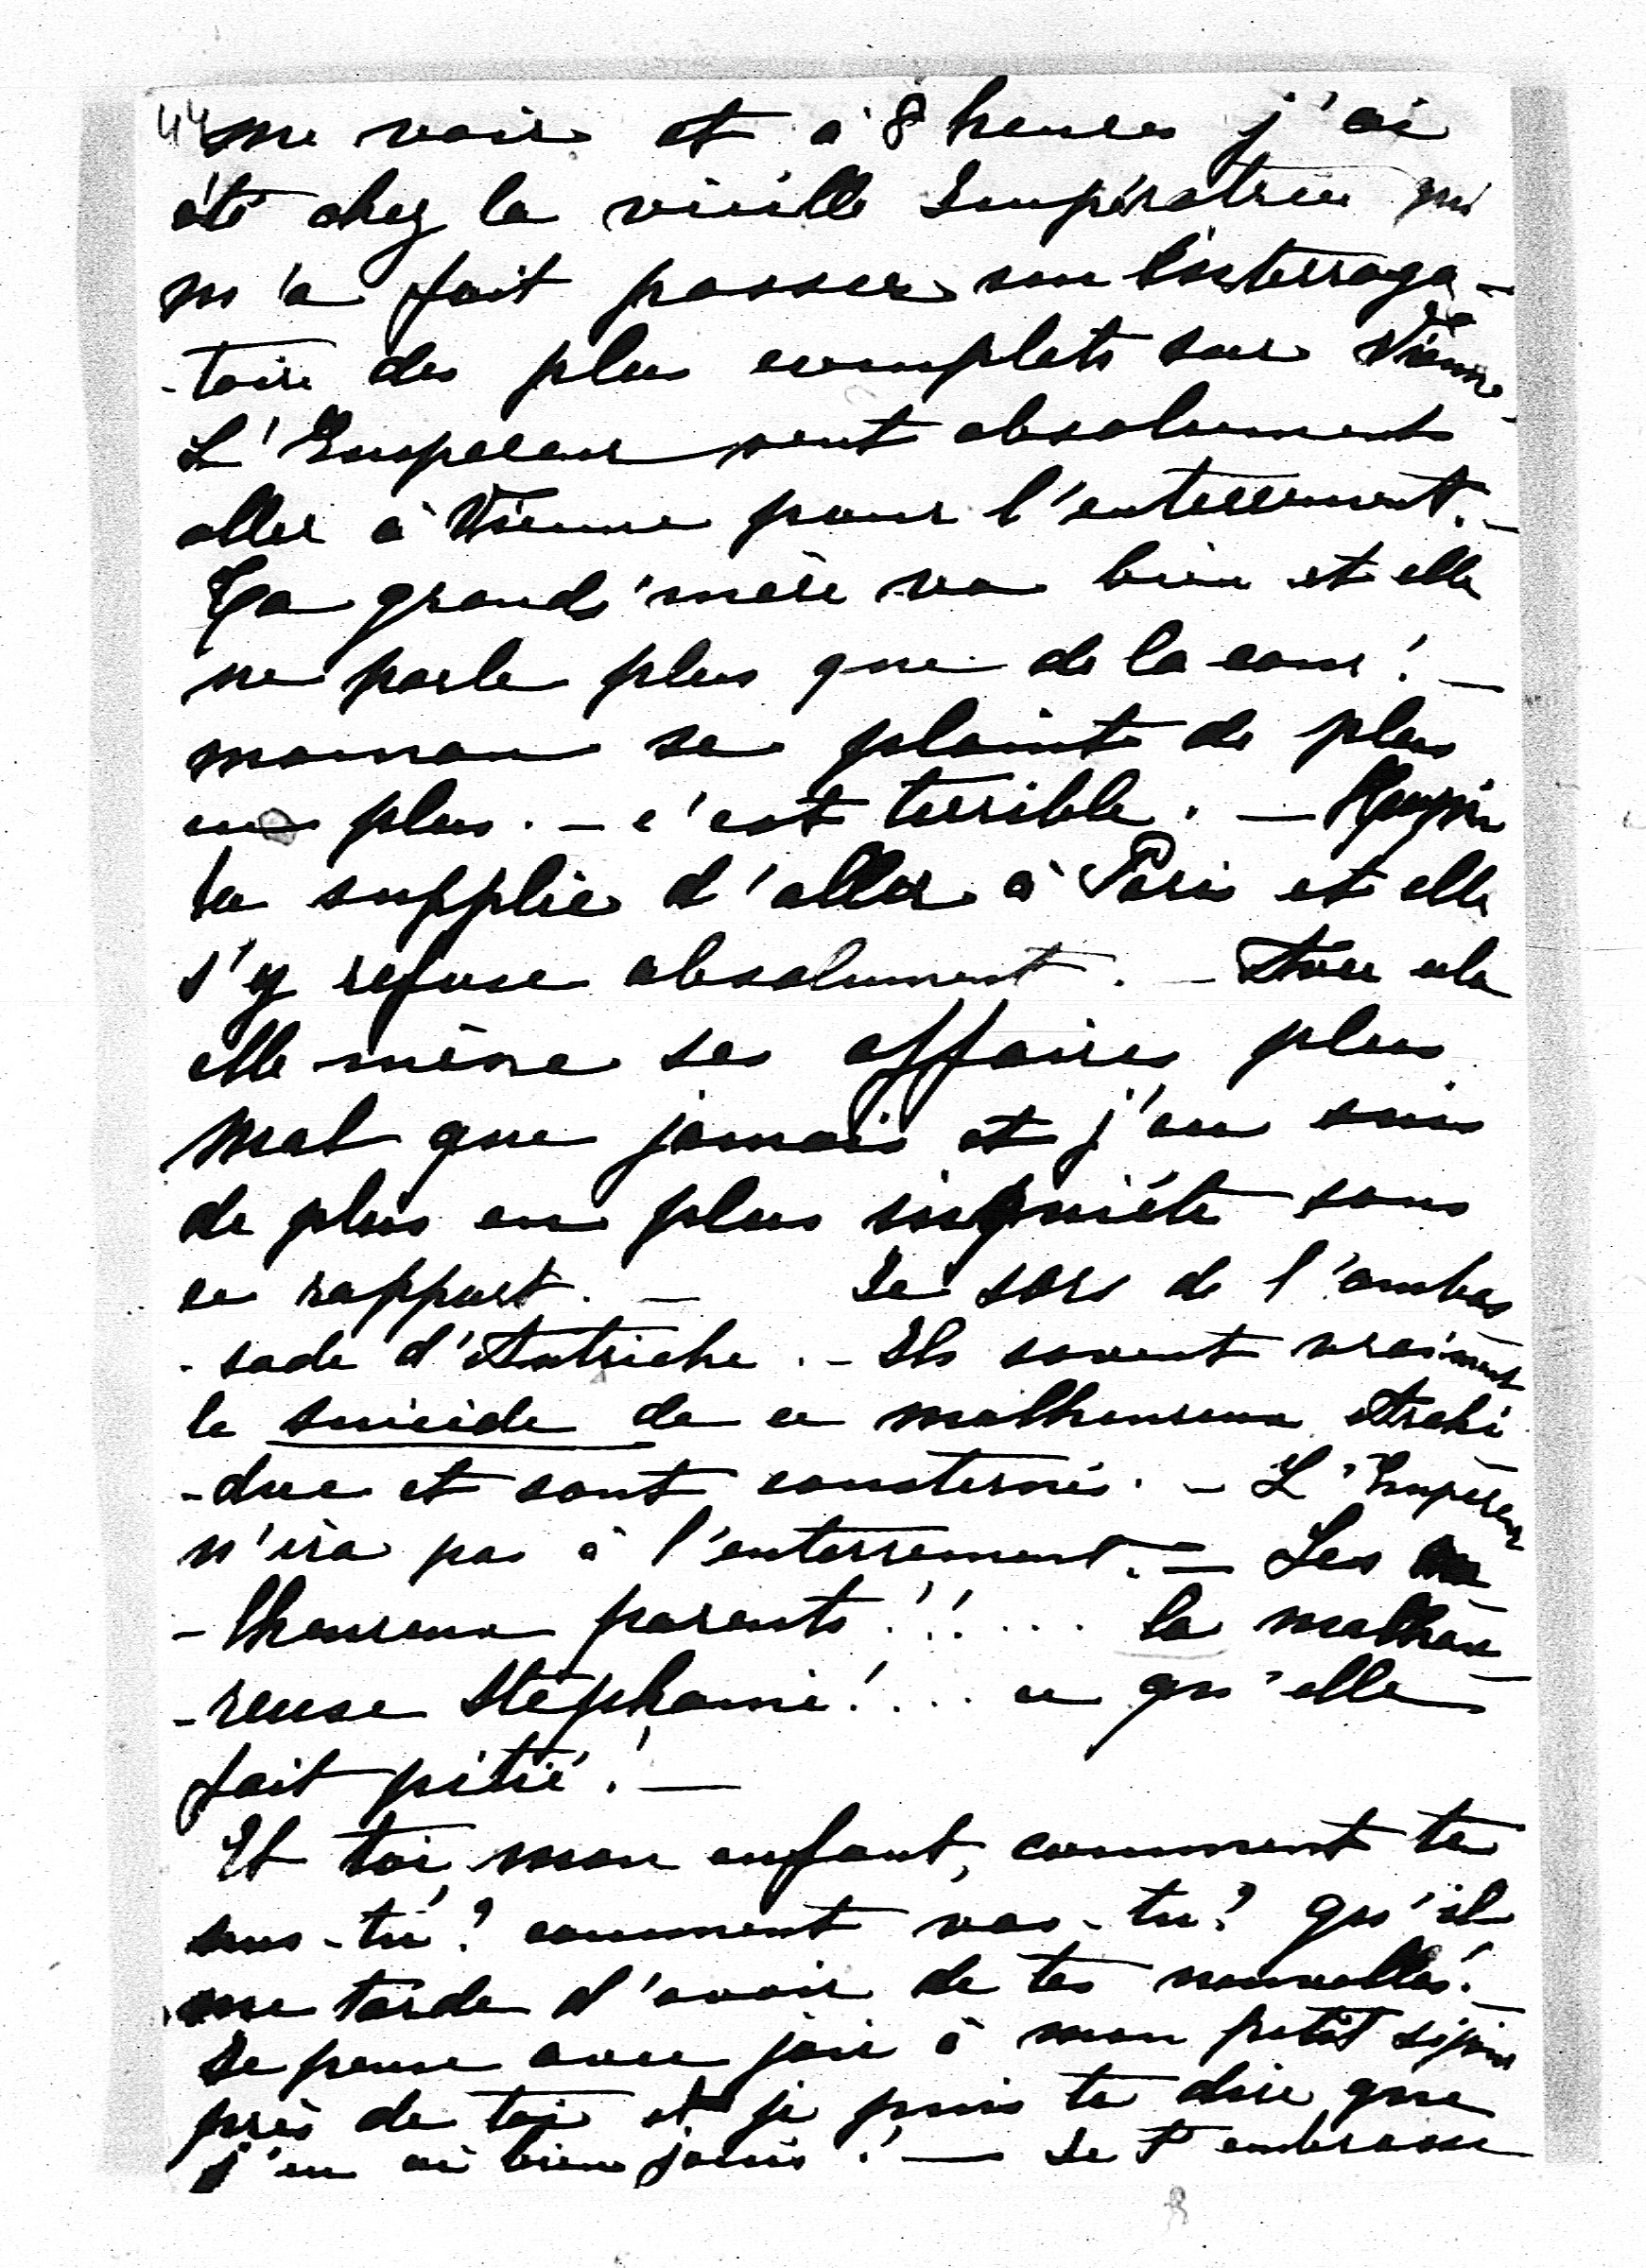 44 me voir et à 8 heures j'ai
été chez la vieille Impératrice qui
m'a fait passer un interroga-
-toire des plus complets sur Vienne.
L'Empereur veut absolument
aller à Vienne pour l'enterrement. _
Ta grand'mère va bien et elle
ne parle plus que de la cour! _
maman se plaint de plus
en plus. - c'est terrible. -
la supplie d'aller à Paris et elle
s'y refuse absolument. - Avec cela
elle mène ses affaires plus
mal que jamais et j'en suis
de plus en plus inquiète sous
ce rapport. - Je sors de l'ambas
-sade d'Autriche. - Ils savent vraiment
le suicide de ce malheureux Archi
-duc et sont consternés. - L'Empereur
n'ira pas à l'enterrement. - Les ma
-lheureux parents!!... la malheu
-reuse Stéphanie!... ce qu'elle
fait pitié! _
Et toi, mon enfant, comment te
sens-tu? comment vas-tu? qu'il
me tarde d'avoir de tes nouvelles! _
Je pense avec joie à mon petit séjour
près de toi et je puis te dire que
j'en ai bien joui! _ Je t'embrasse